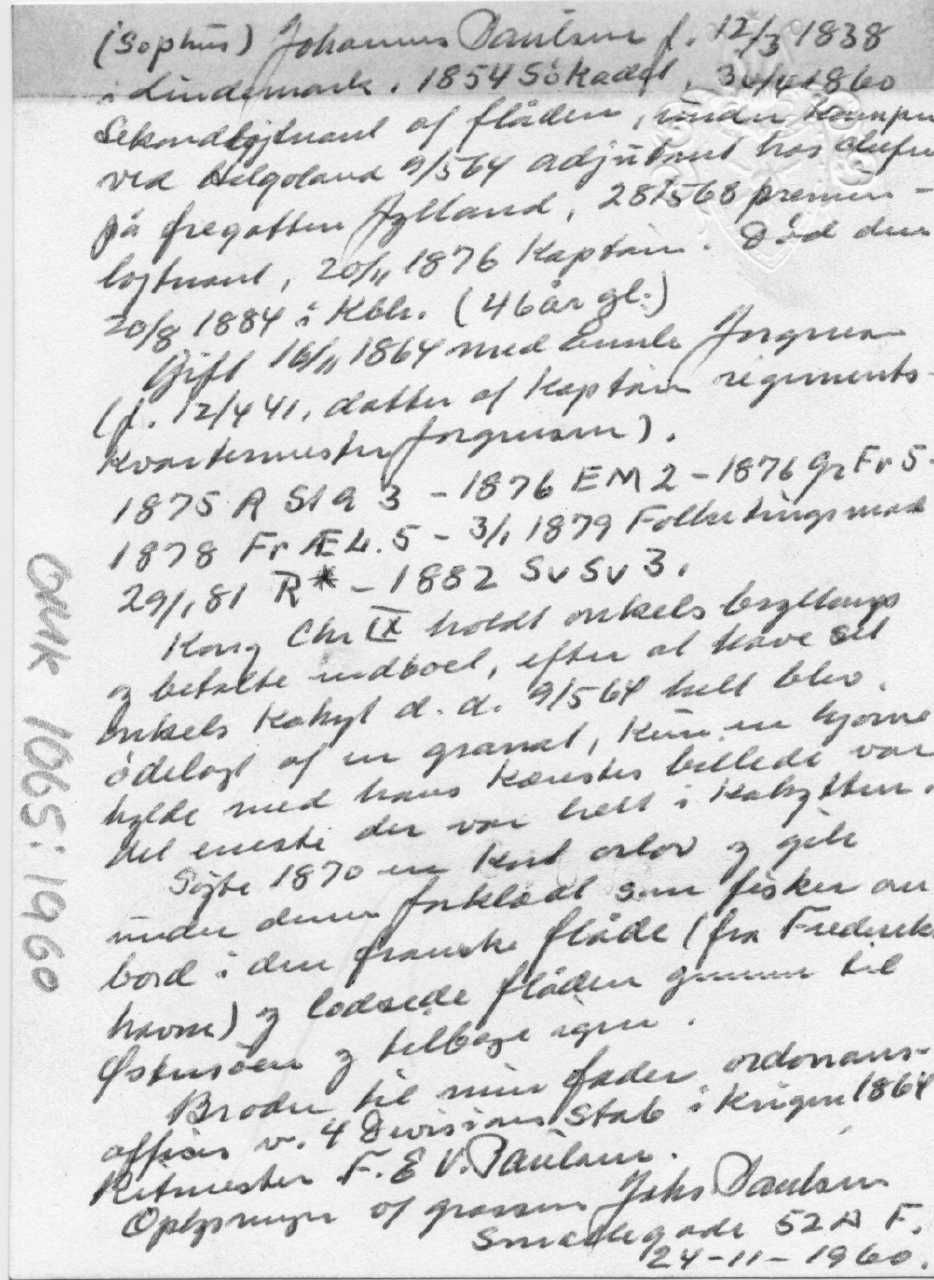 (Sophus) Johannes Paulsen f. 12/3 1838
i Lindemark. 1854 Søkadet, 30/4 1860
Sekondløjtnant af flåden, under Kampen
ved Helgoland 9/5 64 adjutant hos chefen
på fregatten Jylland, 28/5 68 premier-
løjtnant, 20/11 1876 Kaptain. Død den
20/8 1884 i Kbh. (46 år gl.)
Gift 16/11 1864 med Jørgensen
(f. 12/4 41, datter af Kaptain regiments-
kvartermester Jørgensen).
1875 R St A 3 - 1876 EM 2 - 1876 Gr Fr 5 -
1878 Fr Æ L. 5 - 3/1 1879 Folketingsmand
29/1 81 R* - 1882 Sv Sv 3.
Kong Chr IX holdt onkels bryllup
og betalte indboet, efter at have set
onkels Kahyt d. d. 9/5 64 helt blev
ødelagt af en granat, kun en hjørne
hylde med hans kærestes billede var
det eneste der var helt i Kahytten.
Søgte 1870 en kort orlov og gik
under denne forklædt som fisker om
bord i den franske flåde (fra Frederiks
havn) og lodsede flåden gennem til
Østersøen og tilbage igen.
Broder til min fader, ordonnans-
officer v. 4 Divisions Stab i krigen 1864
Ritmester F. E V. Paulsen.
Oplysninger af Johs Paulsen
Smallegade 52A F.
24-11-1960.
OMK 1065:1960